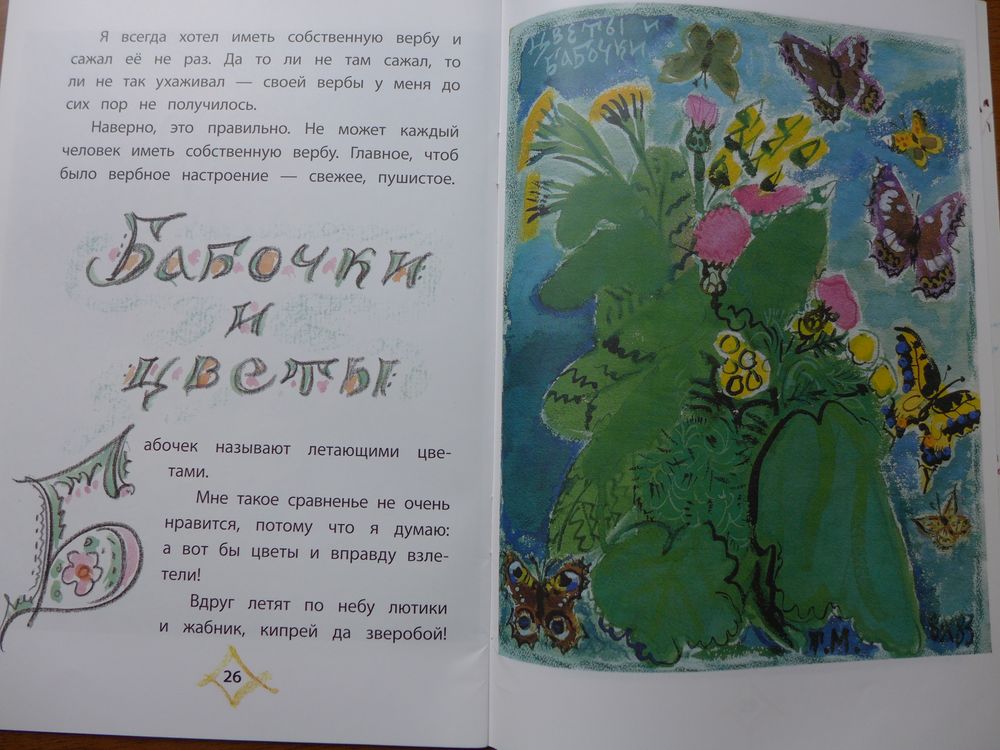 Я всегда хотел иметь собственную вербу и
сажал её не раз. Да то ли не там сажал, то
ли не так ухаживал — своей вербы у меня до
сих пор не получилось.
Наверно, это правильно. Не может каждый
человек иметь собственную вербу. Главное, чтоб
было вербное настроение — свежее, пушистое.
Бабочки
и
цветы
Бабочек называют летающими цве-
тами.
Мне такое сравненье не очень
нравится, потому что я думаю:
а вот бы цветы и вправду взле-
тели!
Вдруг летят по небу лютики
и жабник, кипрей да зверобой!
26
Цветы и
бабочки
Т.М.